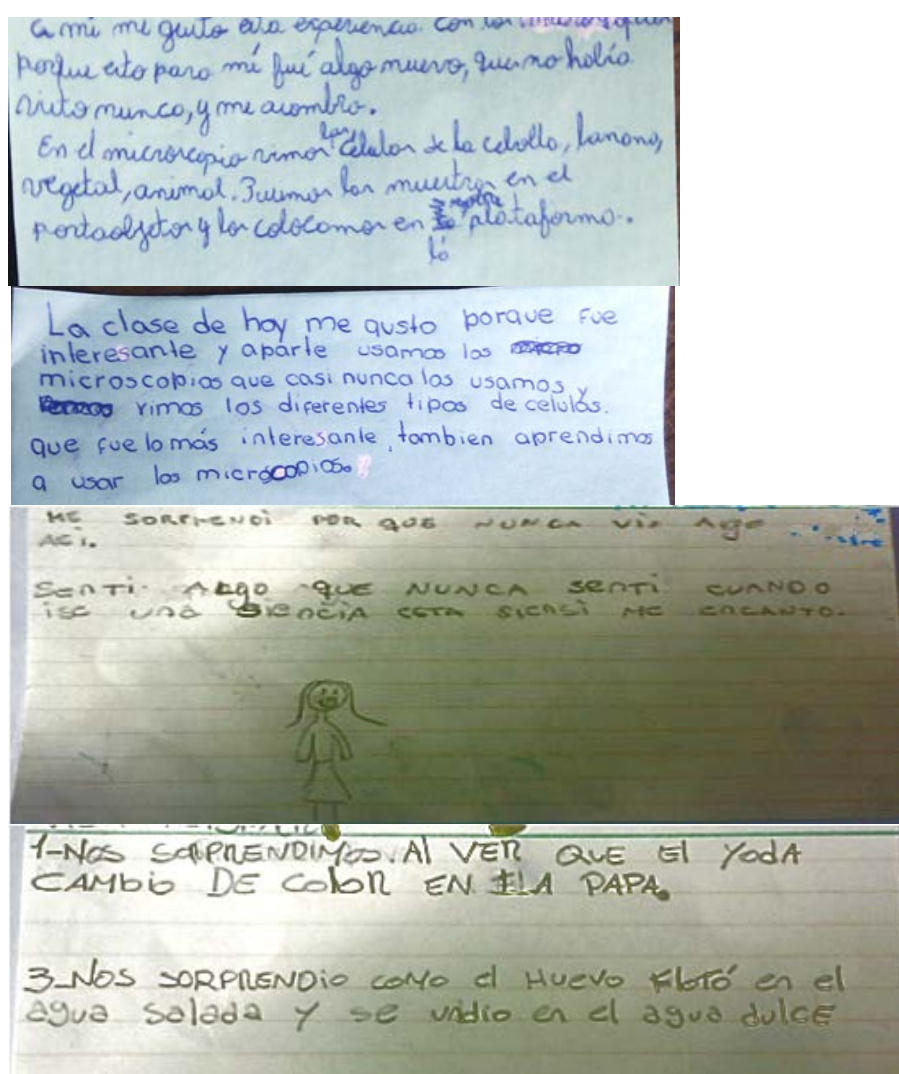 a mi me gusto esta experiencia. con los
porque esto para mí fué algo nuevo, que no había
visto nunca, y me asombro.
En el microscopio vimos las celulas de la cebolla, banana,
vegetal, animal. Pusimos las muestras en el
portaobjetos y los colocamos en la plataforma.
La clase de hoy me gusto porque fue
interesante y aparte usamos los
microscopios que casi nunca los usamos y
vimos los diferentes tipos de celulas.
que fue lo más interesante, tambien aprendimos
a usar los microcopios.
ME SORPRENDI POR QUE NUNCA Vi
ASi.
SENTi ALGO QUE NUNCA SENTi CUANDO
ISE UNA SIENCIA ESTA SIENSi ME ENCANTO.
1-NOS SORPRENDIMOS Al VER QUE El YodA
CAMbio DE ColoR EN LA PAPA.
3-NOS SORPRENDio COMO el HUEVO Flotó en el
agua Salada Y se undio en el agua dulce